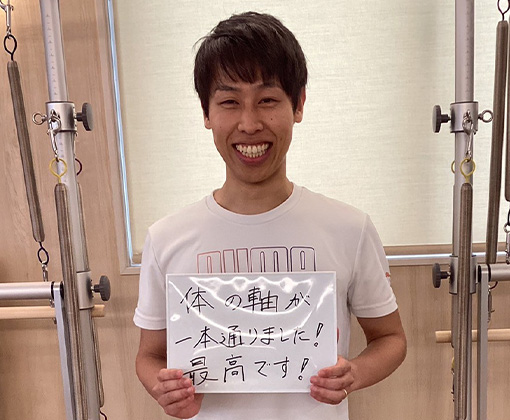 PUMA
体の軸が
一本通りました!
最高です!